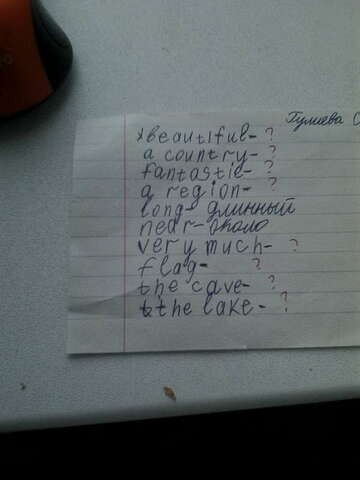 Гулиева С
beautiful- ?
a country- ?
fantastic- ?
a region- ?
long- длинный
near- около
very much- ?
flag- ?
the cave- ?
the lake- ?